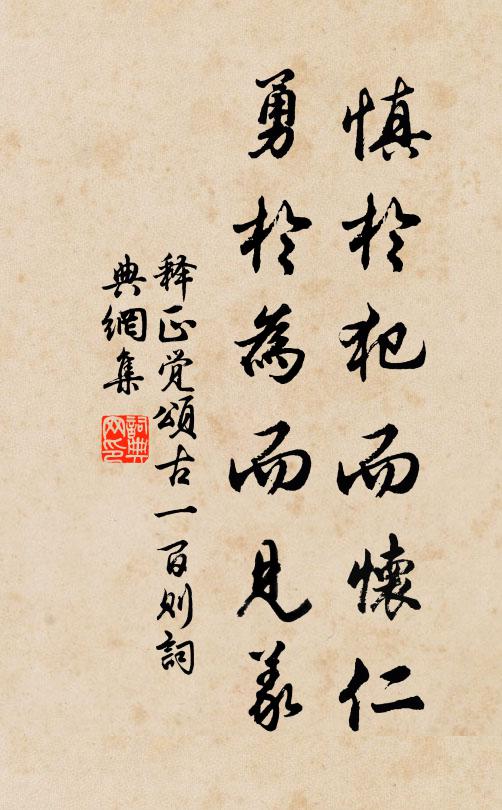 慎於犯而懷仁
勇於為而見義
释正觉頌古一百则詞
典網集
詞典
网印